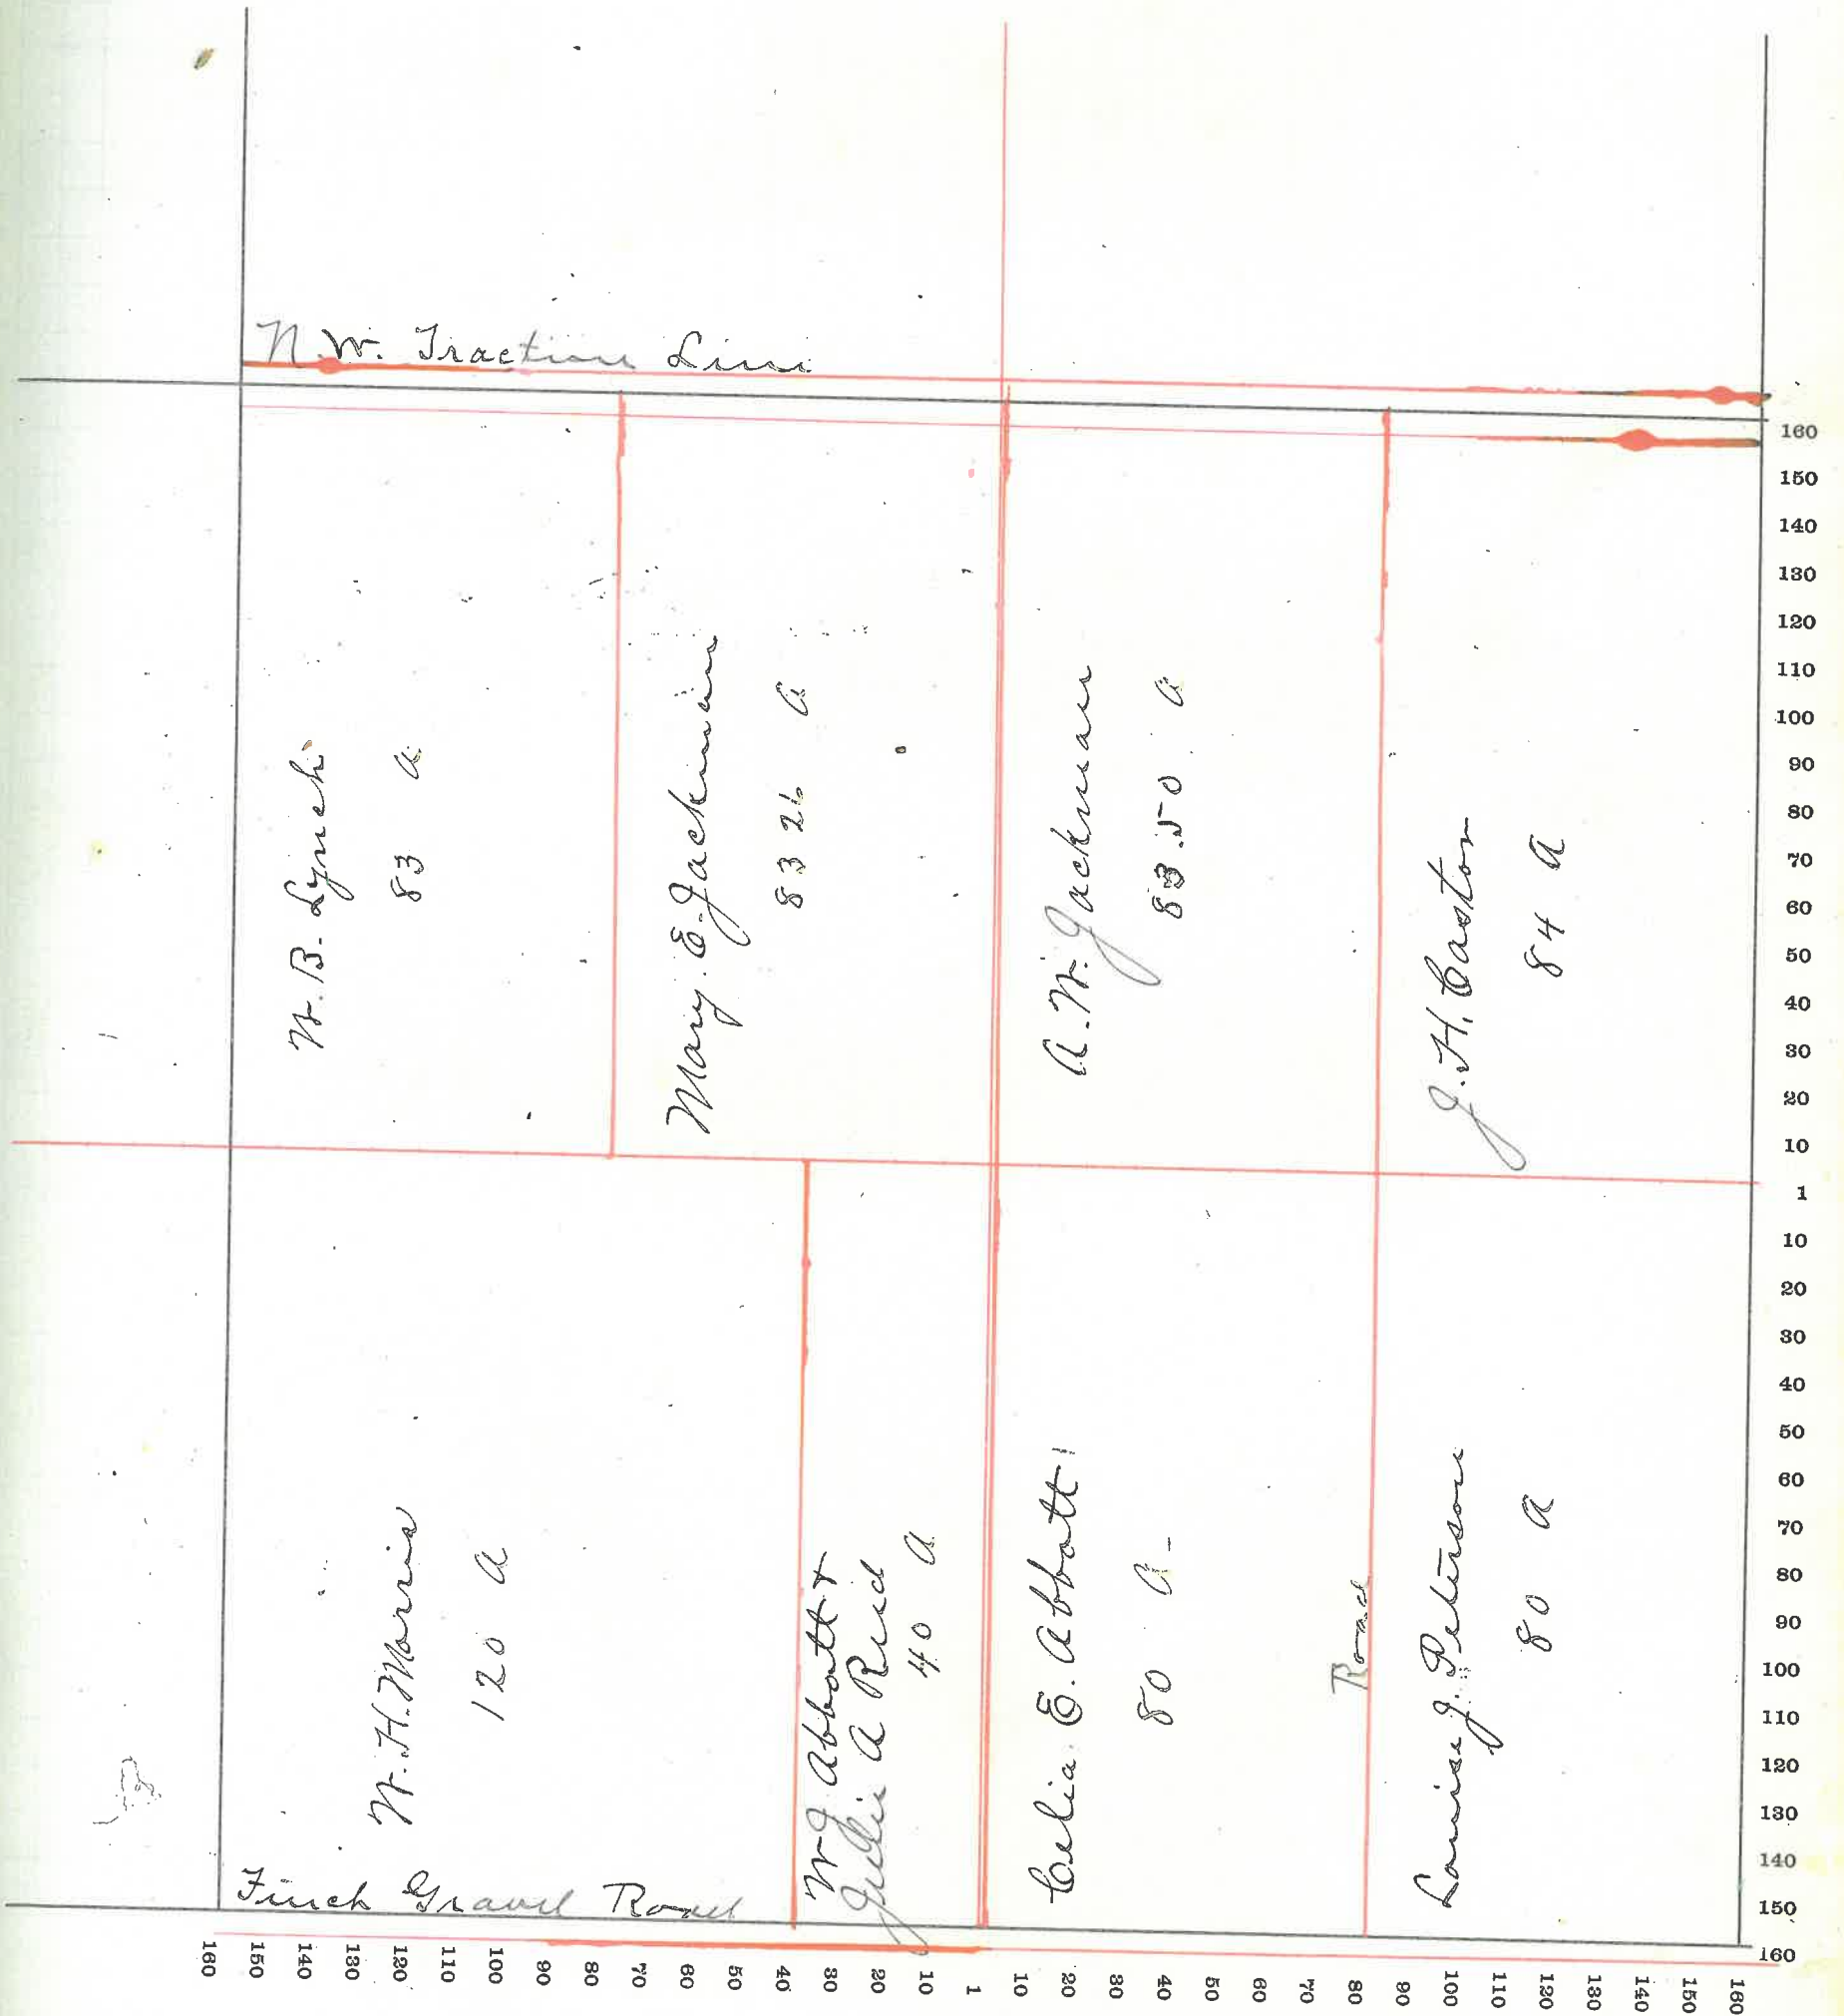 N.W. Traction Line
W. B. Lynch
83 a
Mary E. Jackman
83 26 a
A. W. Jackman
83.50 a
J. H. Caston
84 a
W. H. Morris
120 a
W J Abbott &
Julia A Reid
40 a
Celia E. Abbott
80 a
Road
Louisa J. Peterson
80 a
Finch Gravel Road
160
150
140
130
120
110
100
90
80
70
60
50
40
30
20
10
1
10
20
30
40
50
60
70
80
90
100
110
120
130
140
150
160
160 150 140 130 120 110 100 90 80 70 60 50 40 30 20 10 1 10 20 30 40 50 60 70 80 90 100 110 120 130 140 150 160